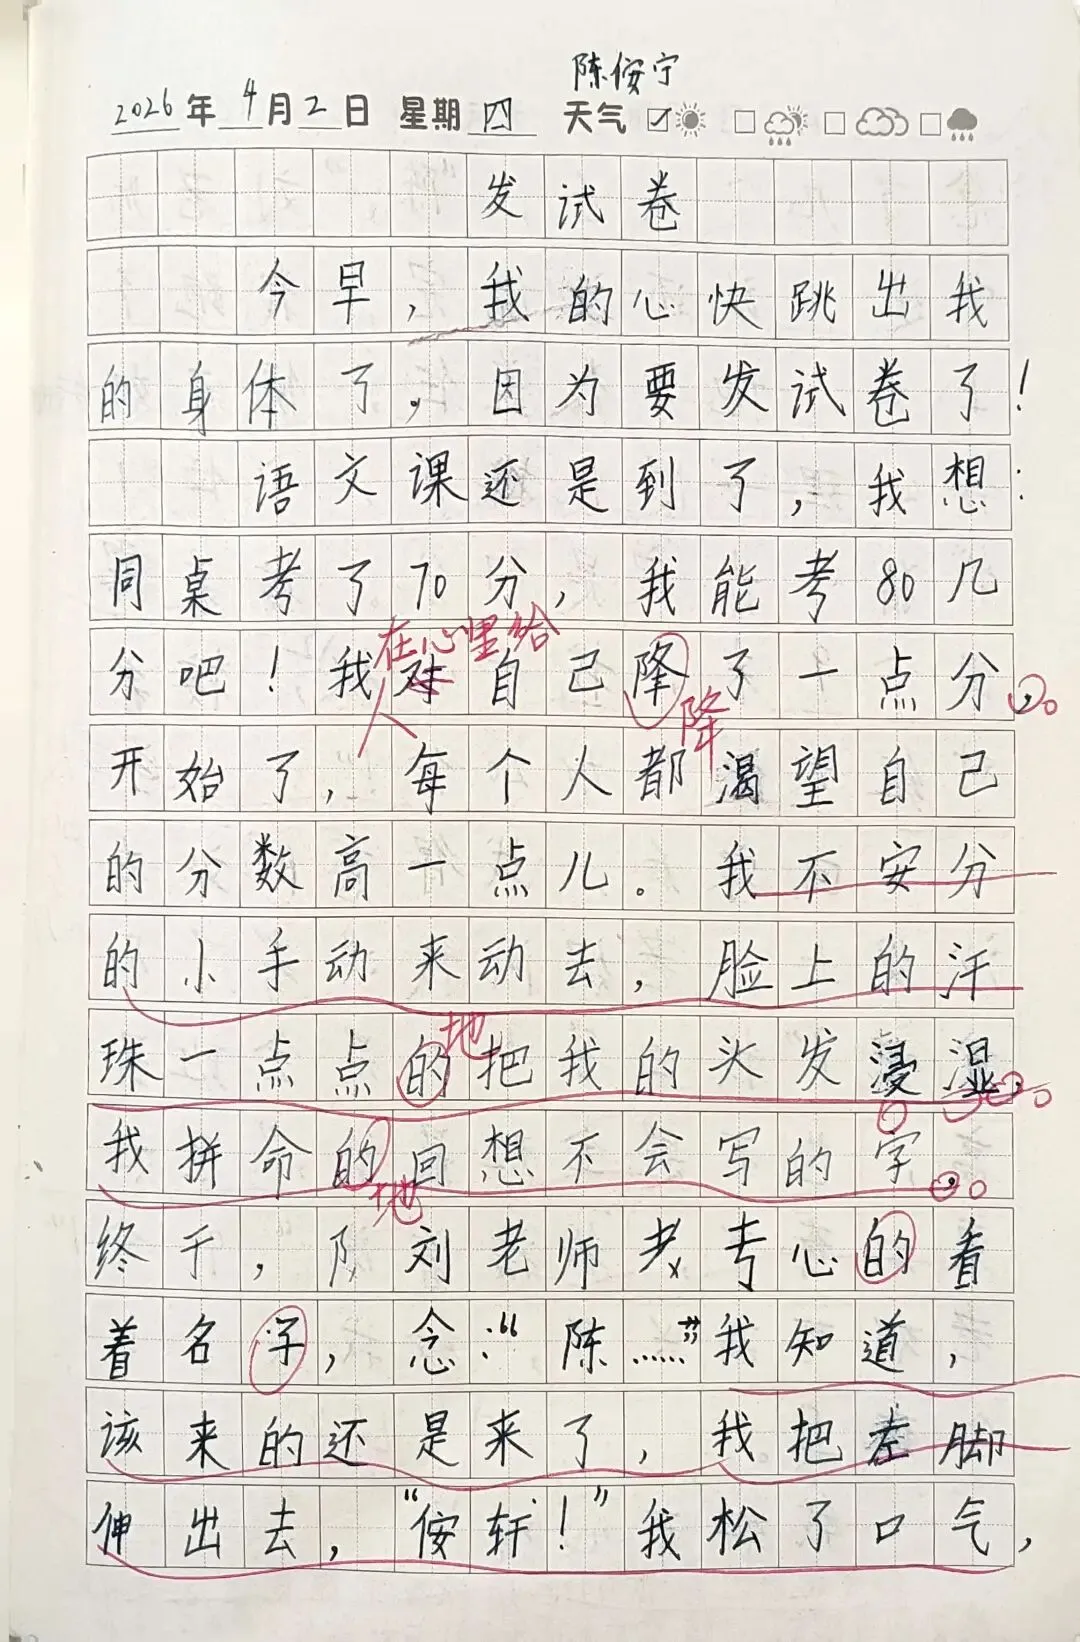 陈侒宁
2026年4月2日 星期四 天气
发试卷
今早，我的心快跳出我
的身体了。因为要发试卷了！
语文课还是到了，我想：
同桌考了70分，我能考80几
在心里给
分吧！我对自己降了一点分，。
降
开始了，每个人都渴望自己
的分数高一点儿。我不安分
的小手动来动去，脸上的汗
地
珠一点点的把我的头发浸湿，。
我拼命的回想不会写的字，。
地
终于，刘老师专心的看
着名字，念：“陈……”我知道，
该来的还是来了，我把左脚
伸出去，“侒轩！”我松了口气，